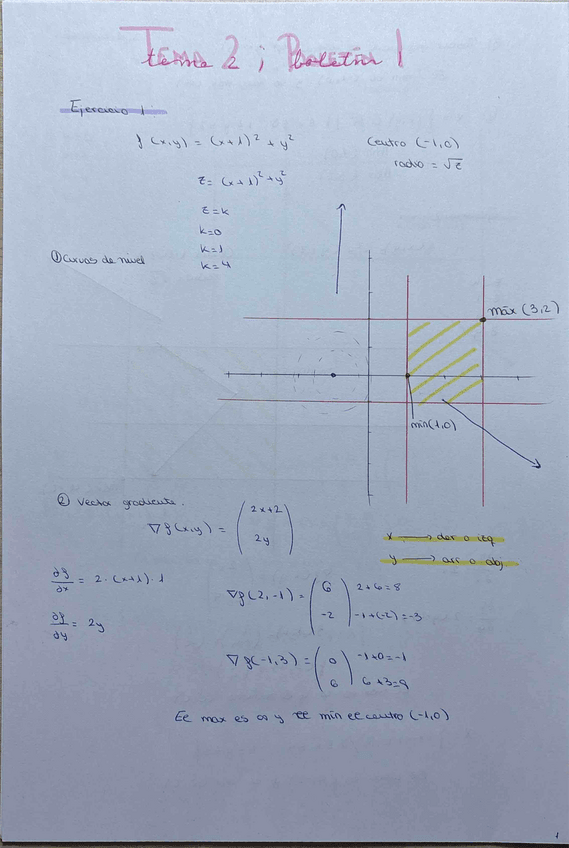 Tema 2; Boletín 1
Ejercicio 1
f(x,y) = (x+1)² + y²
Centro (-1,0)
radio = √z
z = (x+1)² + y²
z = k
k=0
k=1
k=4
① Curvas de nivel
máx (3,2)
mín (1,0)
② Vector gradiente.
∇f(x,y) = (2x+2
2y)
x → der o izq
y → arr o abj
∂f/∂x = 2·(x+1)·1
∂f/∂y = 2y
∇f(2,-1) = (6 2+6=8
-2) -1+(-2)=-3
∇f(-1,3) = (0 -1+0=-1
6) 6+3=9
El max es ∞ y el mín el centro (-1,0)
1